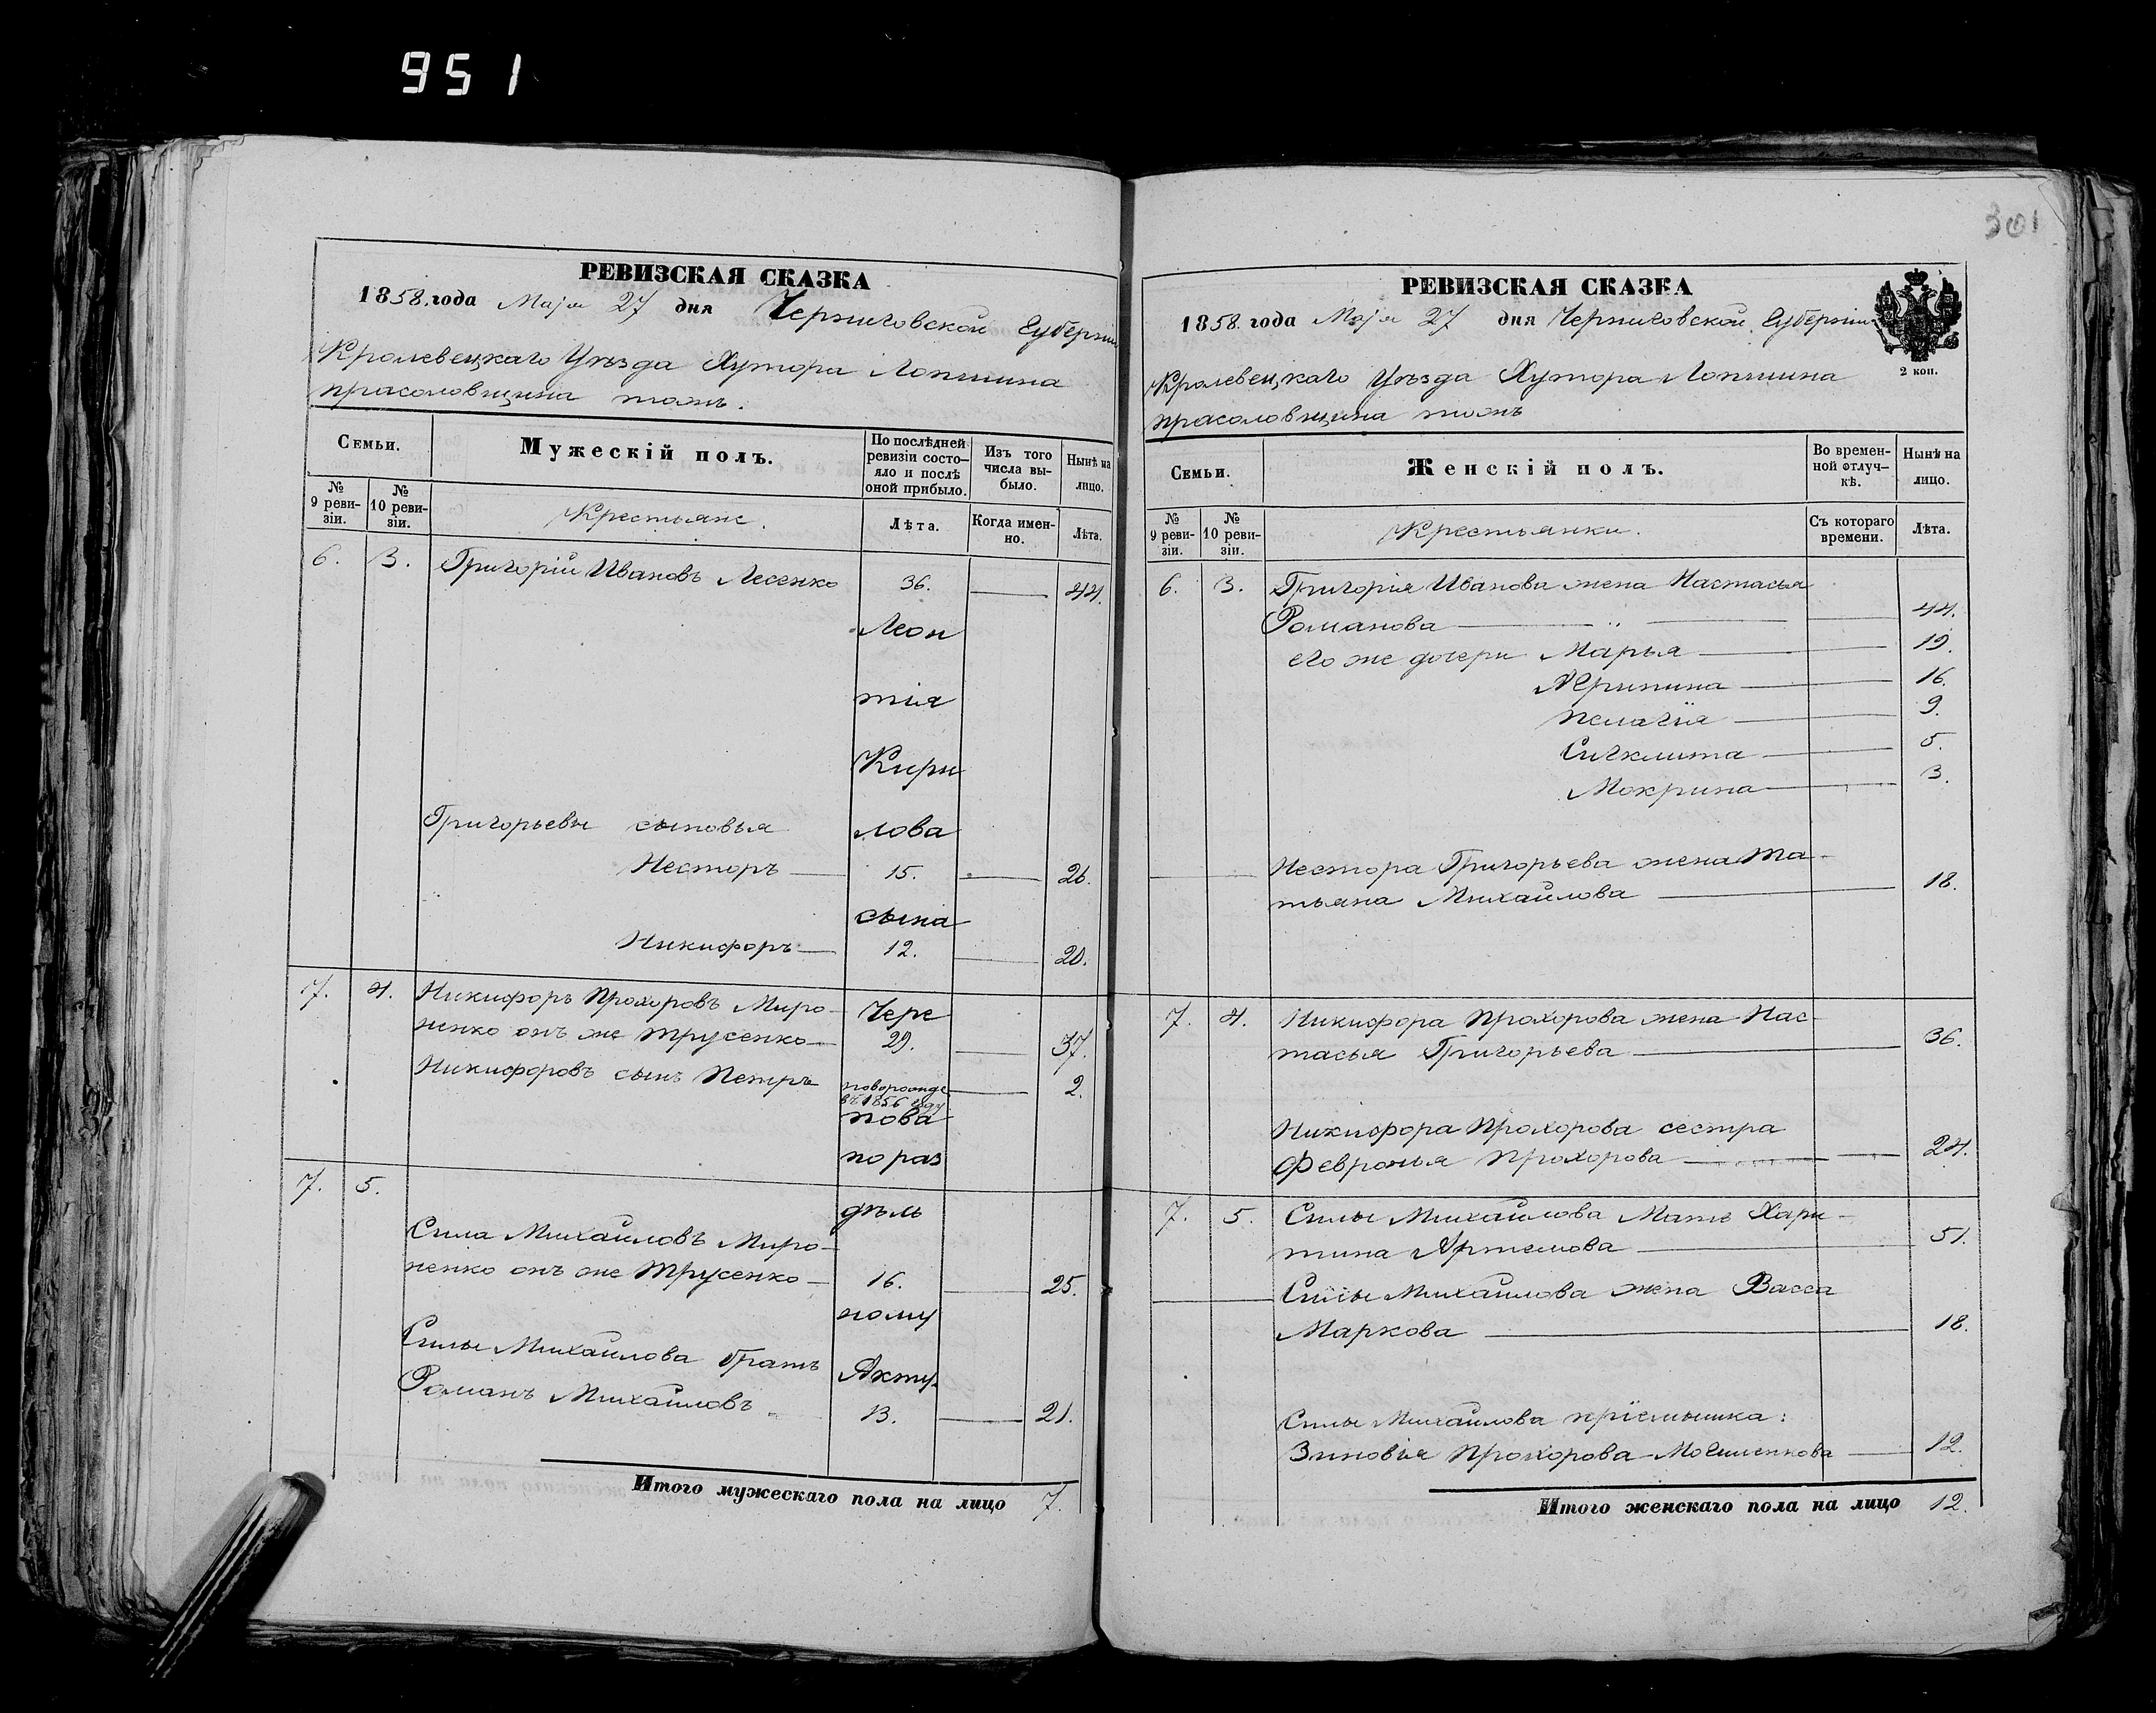 951
301
РЕВИЗСКАЯ СКАЗКА
1858. года Маія 27 дня Черниговской Губерніи
Кролевецкаго Уѣзда Хутора Лапшина
прасоловщина тожъ.
Семьи.
Мужескій полъ.
По послѣдней ревизіи состояло и послѣ оной прибыло.
Изъ того числа выбыло.
Нынѣ на лицо.
№ 9 ревизіи.
№ 10 ревизіи.
Крестьяне.
Лѣта.
Когда именно.
Лѣта.
6. 3. Григорій Ивановъ Лесенко 36. 44.
Леон
тія
Кири
Григорьевы сыновья лова
Несторъ 15. 26.
сына
Никифоръ 12. 20.
7. 4. Никифоръ Прохоровъ Миро- Чере
ненко онъ же Трусенко 29. 37.
Никифоровъ сынъ Петръ новорожде 2.
въ 1856 году
пова
по раз
7. 5.
дѣль
Сила Михайловъ Миро-
ненко онъ же Трусенко 16. 25.
ному
Силы Михайлова братъ Акту.
Романъ Михайловъ 13. 21.
Итого мужескаго пола на лицо 7.
РЕВИЗСКАЯ СКАЗКА
1858. года Маія 27 дня Черниговской Губерніи
2 коп.
Кролевецкаго Уѣзда Хутора Лапшина
прасоловщина тожъ
Семьи.
Женскій полъ.
Во временной отлучкѣ.
Нынѣ на лицо.
№ 9 ревизіи.
№ 10 ревизіи.
Крестьянки.
Съ котораго времени.
Лѣта.
6. 3. Григорія Иванова жена Настасья
Романова 44.
его же дочери Марья 19.
Агрипина 16.
Пелагія 9.
Сигклита 5.
Мокрина 3.
Нестора Григорьева жена Та-
тьяна Михайлова 18.
7. 4. Никифора Прохорова жена Нас-
тасья Григорьева 36.
Никифора Прохорова сестра
Февронья Прохорова 24.
7. 5. Силы Михайлова Мать Хари-
тина Артемова 51.
Силы Михайлова жена Васса
Маркова 18.
Силы Михайлова пріемышка:
Зиновія Прохорова 12.
Итого женскаго пола на лицо 12.